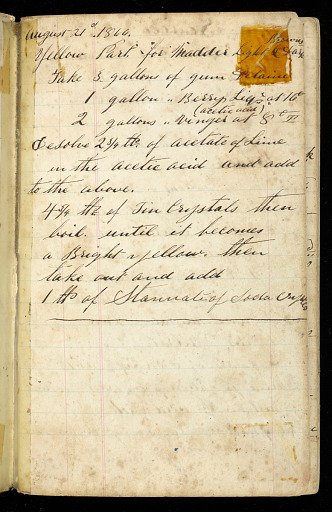 August 21st, 1866.
Yellow Part for Madder Light & Dark Browns
Take 3 gallons of gum
1 gallon " Berry Liqr at 16°
(acetic acid)
2 gallons " Vinegar at 8° T
Desolve 2 1/4 lbs of acetate of Lime
in the acetic acid and add
to the above.
4 3/4 lbs of Tin Crystals then
boil until it becomes
a Bright yellow. then
take out and add
1 lb of Stannate of Soda